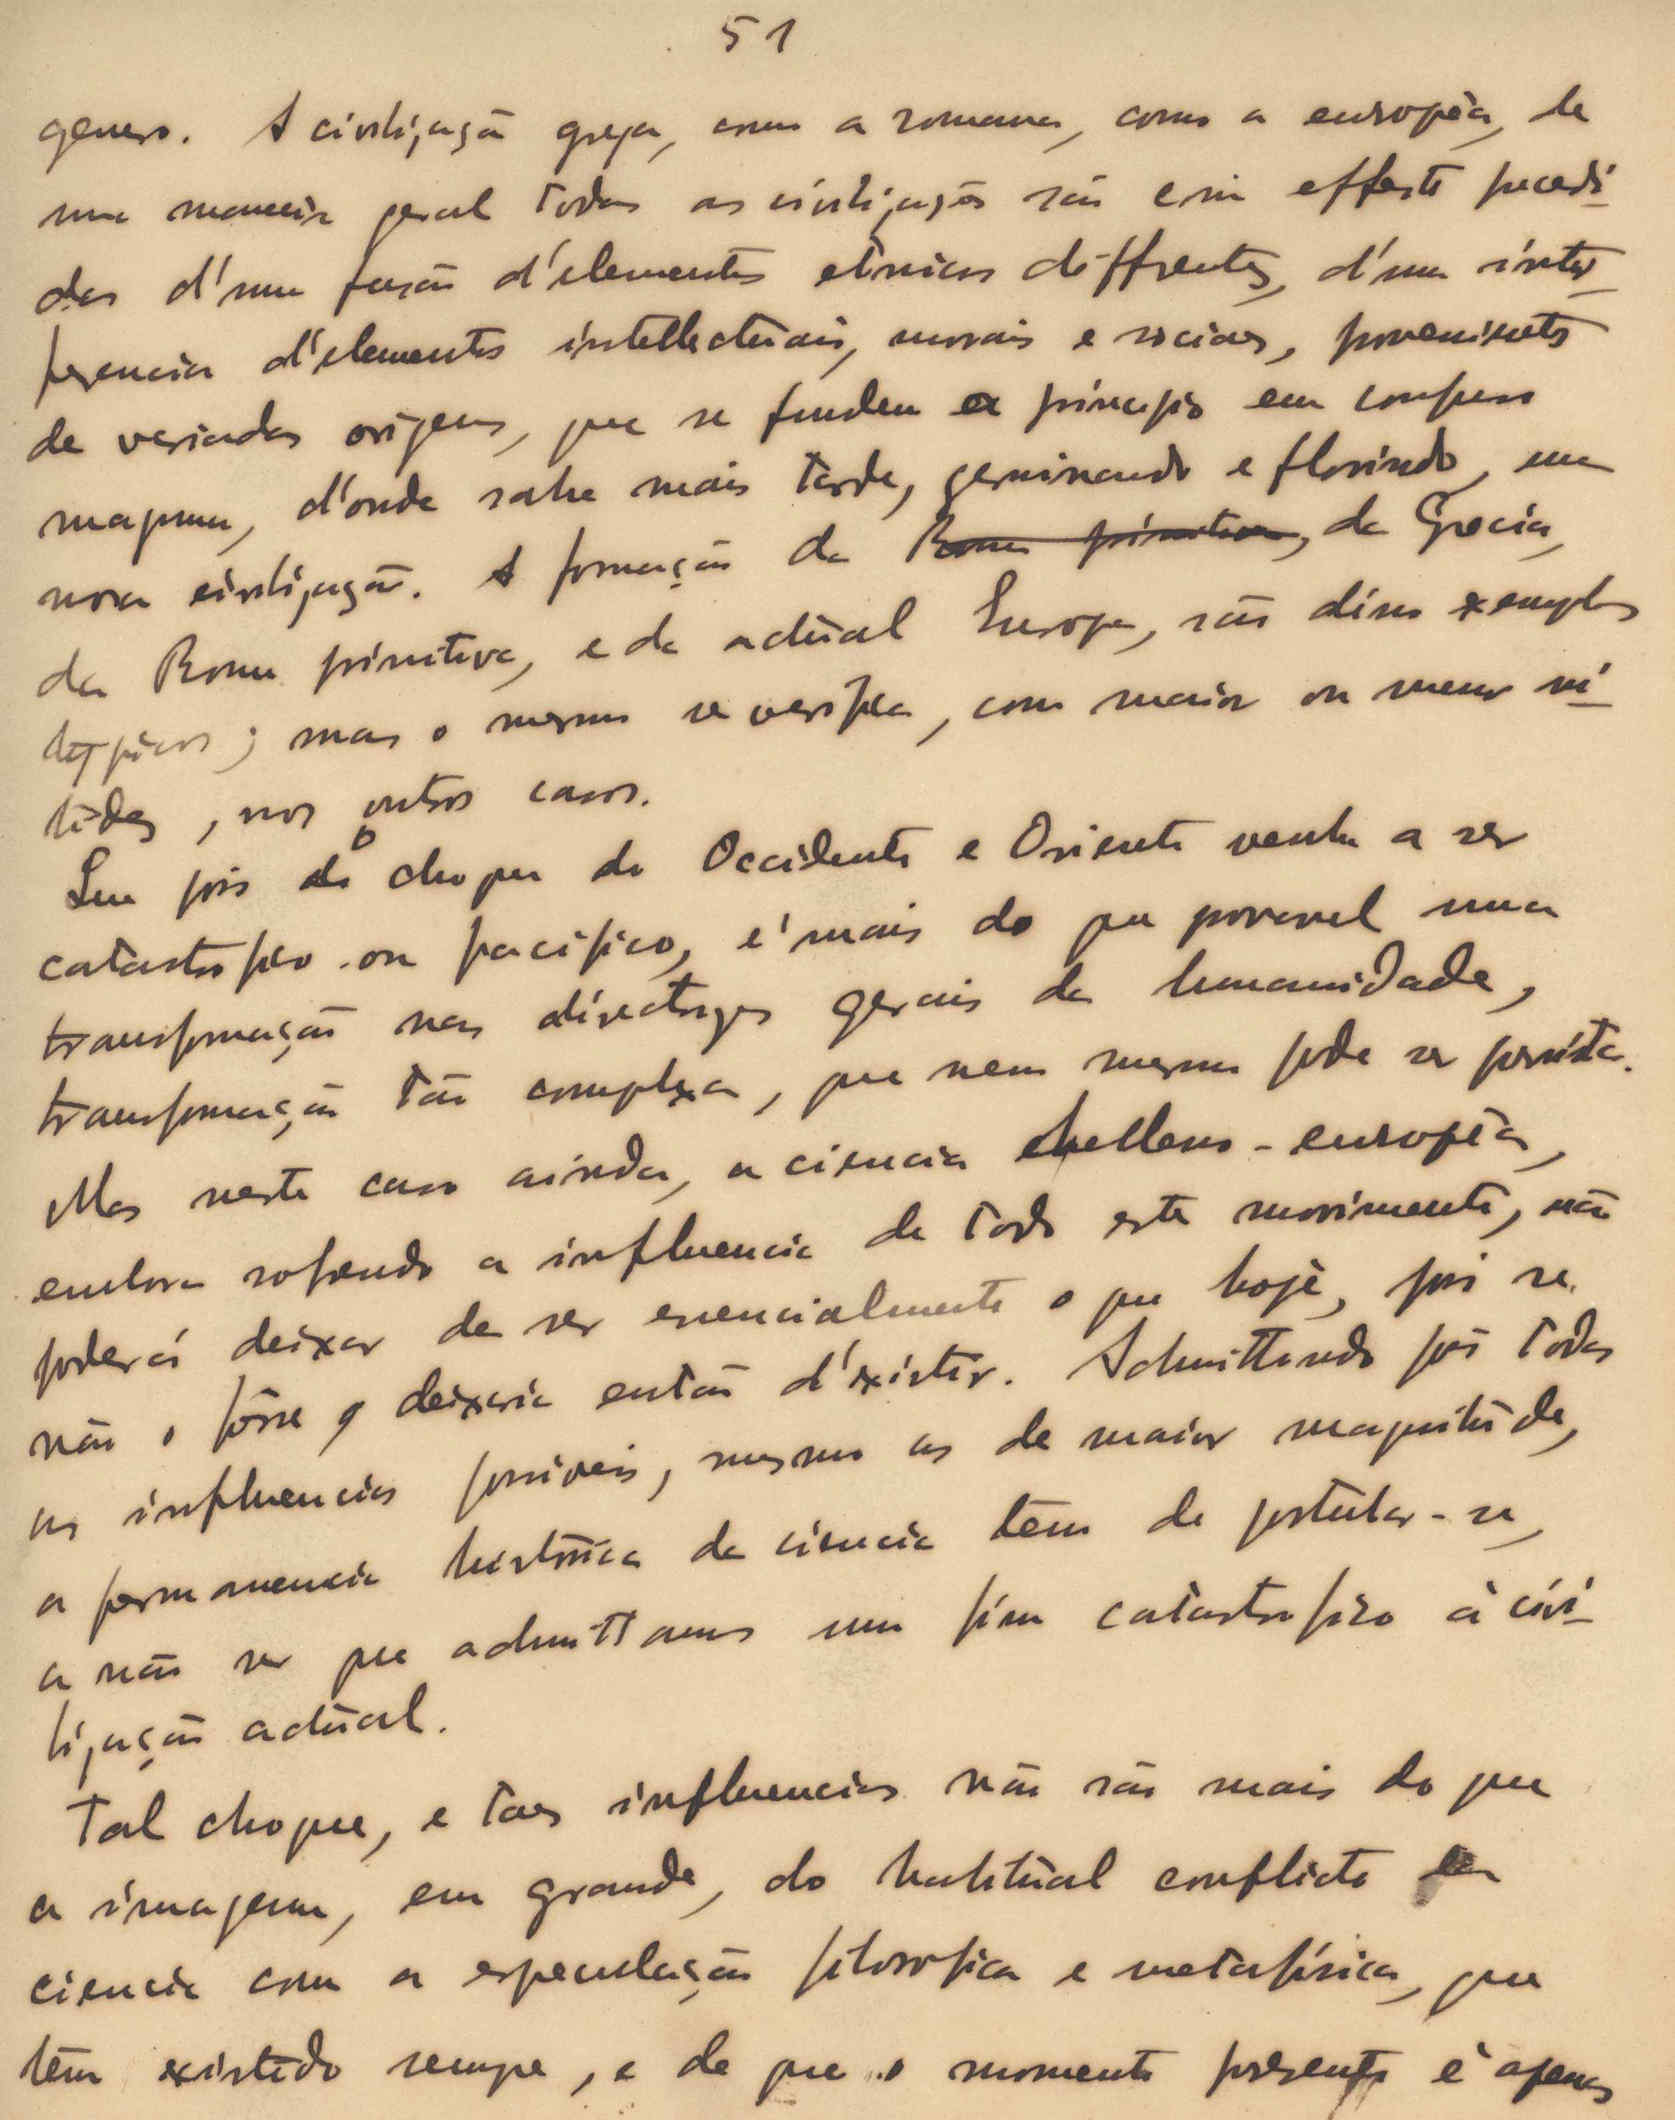 51
genero. A civilização grega, como a romana, como a européa, de
uma maneira geral todas as civilizações são com effeito precedi-
das d'uma fusão d'elementos etnicos differentes, d'uma inter-
ferencia d'elementos intellectuais, morais e sociaes, provenientes
de variadas origens, que se fundem a principio em confuso
magma, d'onde sahe mais tarde, germinando e florindo, uma
nova civilização. A formação da Roma primitiva, da Grecia,
da Roma primitiva, e da actual Europa, são disso exemplos
typicos; mas o mesmo se verifica, com maior ou menor ni-
tidez, nos outros casos.
Sem pois o choque do Occidente e Oriente venha a ser
catastrofico ou pacifico, é mais do que provavel uma
transformação nas directrizes gerais da humanidade,
transformação tão complexa, que nem mesmo pode ser prevista.
Mas neste caso ainda, a ciencia helleno-européa,
embora sofrendo a influencia de todo este movimento, não
poderá deixar de ser essencialmente o que hoje, pois se
não o fôsse q deixaria então d'existir. Admittindo pois todas
as influencias possiveis, mesmo as de maior magnitude,
a permanencia historica da ciencia tem de postular-se,
a não ser que admittamos um fim catastrofico à civi-
lização actual.
Tal choque, e taes influencias não são mais do que
a imagem, em grande, do habitual conflicto da
ciencia com a especulação filosofica e metafisica, que
tem existido sempre, e de que o momento presente é apenas